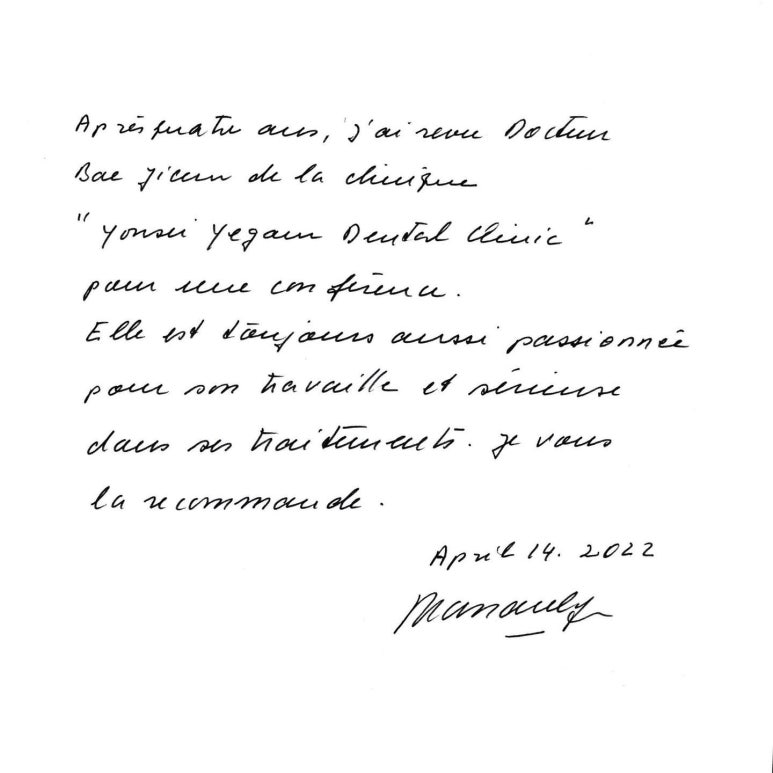 Après quatre ans, j'ai revu Docteur
Bae Jieun de la clinique
"Yonsei Yegam Dental Clinic"
pour une conférence.
Elle est toujours aussi passionnée
pour son travaille et sérieuse
dans ses traitements. Je vous
la recommande.
April 14. 2022